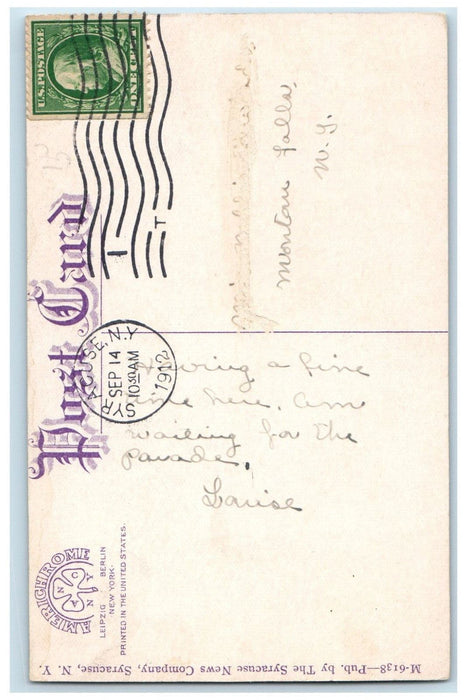 U.S. POSTAGE
ONE CENT
Post Card
SYRACUSE, N.Y.
SEP 14
10 30 AM
1912
1
T
Montour Falls,
N. Y.
Having a fine
time here, am
waiting for the
parade,
Louise
AMERICHROME
A N C N Y
LEIPZIG BERLIN
NEW YORK.
PRINTED IN THE UNITED STATES.
M-6138—Pub. by The Syracuse News Company, Syracuse, N. Y.